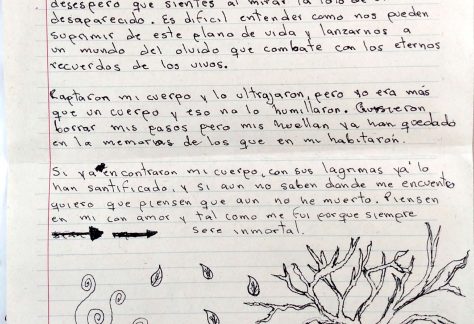 desespero que sientes al mirar la foto de un
desaparecido. Es dificil entender como nos pueden
suprimir de este plano de vida y lanzarnos a
un mundo del olvido que combate con los eternos
recuerdos de los vivos.
Raptaron mi cuerpo y lo ultrajaron, pero yo era más
que un cuerpo y eso no lo humillaron. Quisieron
borrar mis pasos pero mis huellan ya han quedado
en la memorias de los que en mi habitaron.
Si ya encontraron mi cuerpo, con sus lagrimas ya lo
han santificado, y si aun no saben donde me encuentro
quiero que piensen que aun no he muerto. Piensen
en mi con amor y tal como me fui porque siempre
sere inmortal.